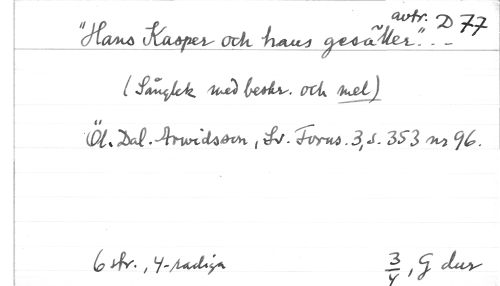 avtr. D 77
"Hans Kasper och hans gesäller" . . -
(Sånglek med beskr. och mel)
Öl. Dal. Arwidsson, Sv. Forns. 3, s. 353 nr 96.
6 str., 4-radiga 3/4, G dur